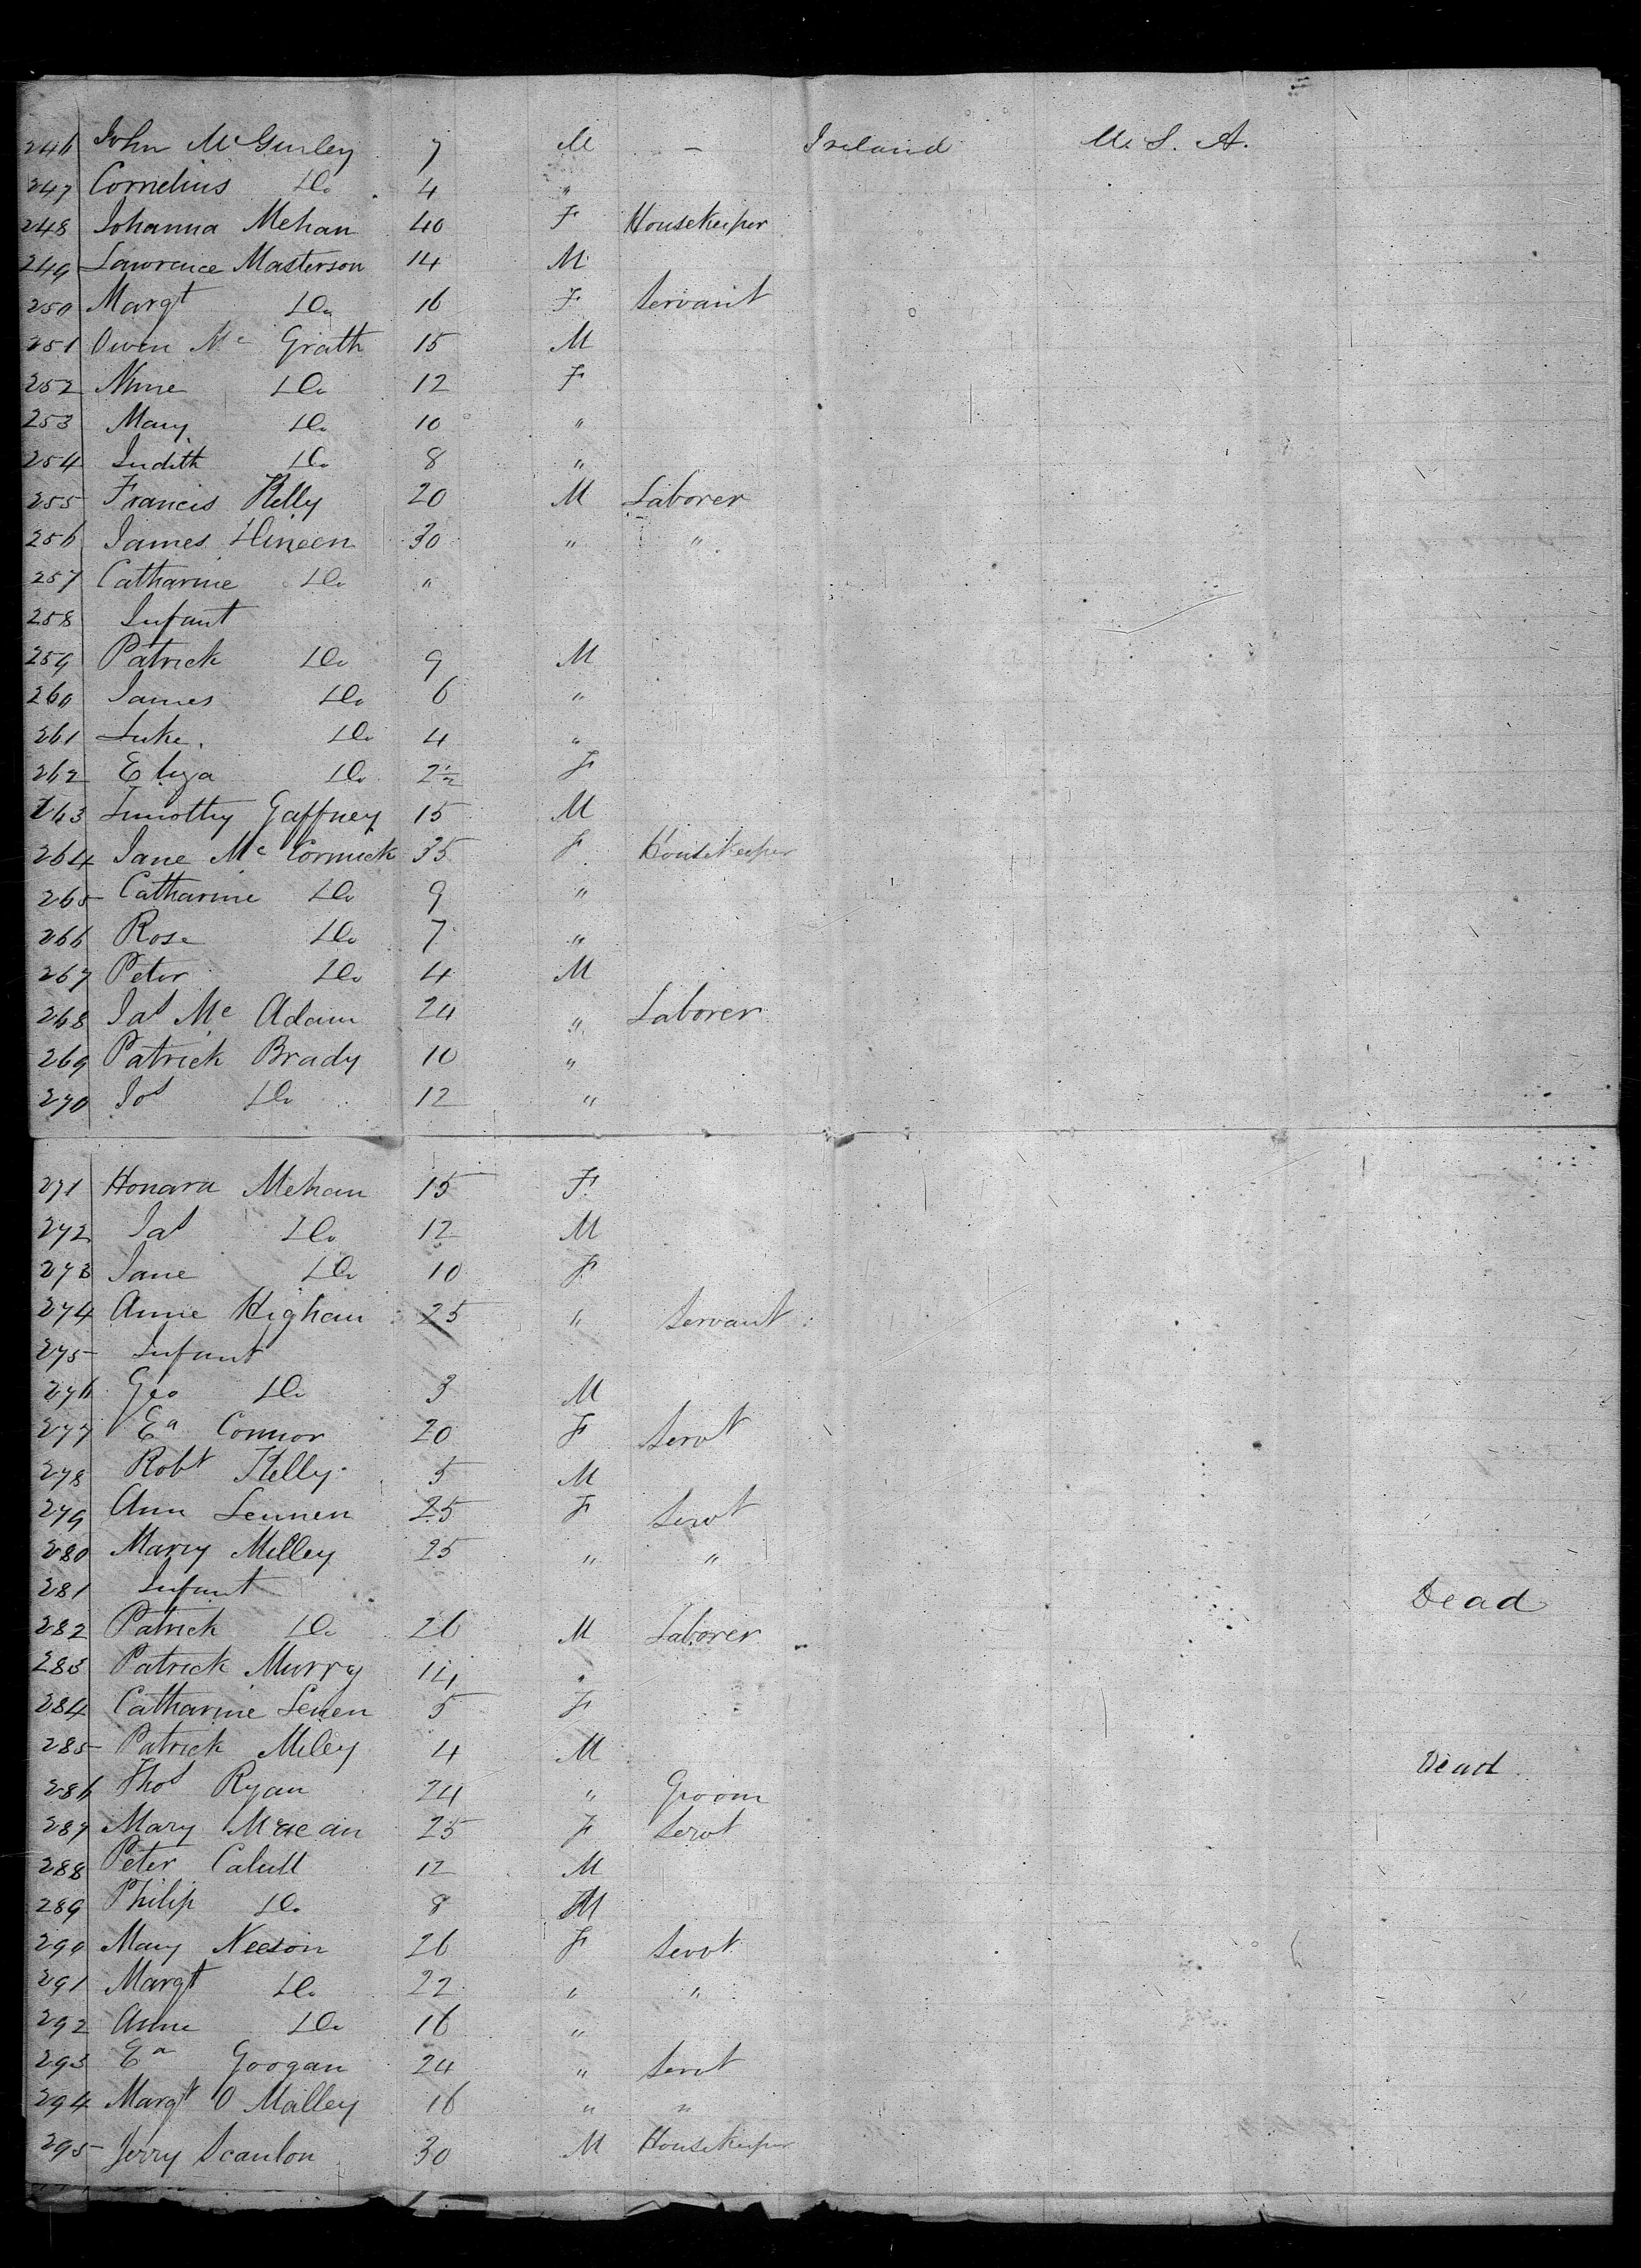 246 John McGurley 7 M - Ireland U.S.A.
247 Cornelius Do 4 "
248 Johanna Mehan 40 F Housekeeper
249 Lawrence Masterson 14 M
250 Margt Do 16 F Servant
251 Owen Mc Grath 15 M
252 Anne Do 12 F
253 Mary Do 10 "
254 Judith Do 8 "
255 Francis Kelly 20 M Laborer
256 James Dineen 30 " "
257 Catharine Do "
258 Infant
259 Patrick Do 9 M
260 James Do 6 "
261 Luke. Do 4 "
262 Eliza Do 2½ F
263 Timothy Gaffney 15 M
264 Jane Mc Cormick 35 F Housekeeper
265 Catharine Do 9 "
266 Rose Do 7 "
267 Peter Do 4 M
268 Jas Mc Adam 24 " Laborer
269 Patrick Brady 10 "
270 Jos Do 12 "
271 Honara Mehan 15 F
272 Jas Do 12 M
273 Jane Do 10 F
274 Anne Highan 25 " Servant
275 Infant
276 Geo Do 3 M
277 Ea Connor 20 F Servt
278 Robt Kelly 5 M
279 Ann Lennen 25 F Servt
280 Mary Milley 25 " "
281 Infant Dead
282 Patrick Do 26 M Laborer
283 Patrick Murry 14 "
284 Catharine Lenen 5 F
285 Patrick Miley 4 M Dead
286 Thos Ryan 24 " Groom
287 Mary 25 F Servt
288 Peter 12 M
289 Philip Do 8 M
290 Mary Neeson 26 F Servt
291 Margt Do 22 " "
292 Anne Do 16 "
293 Ea Googan 24 " Servt
294 Margt O Malley 16 " "
295 Jerry Scanlon 30 M Housekeeper